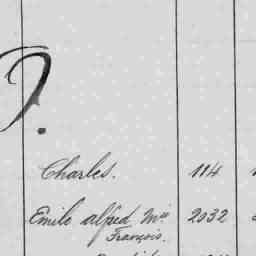 J.
Charles. 114
Emile alfred Mie 2032
François.